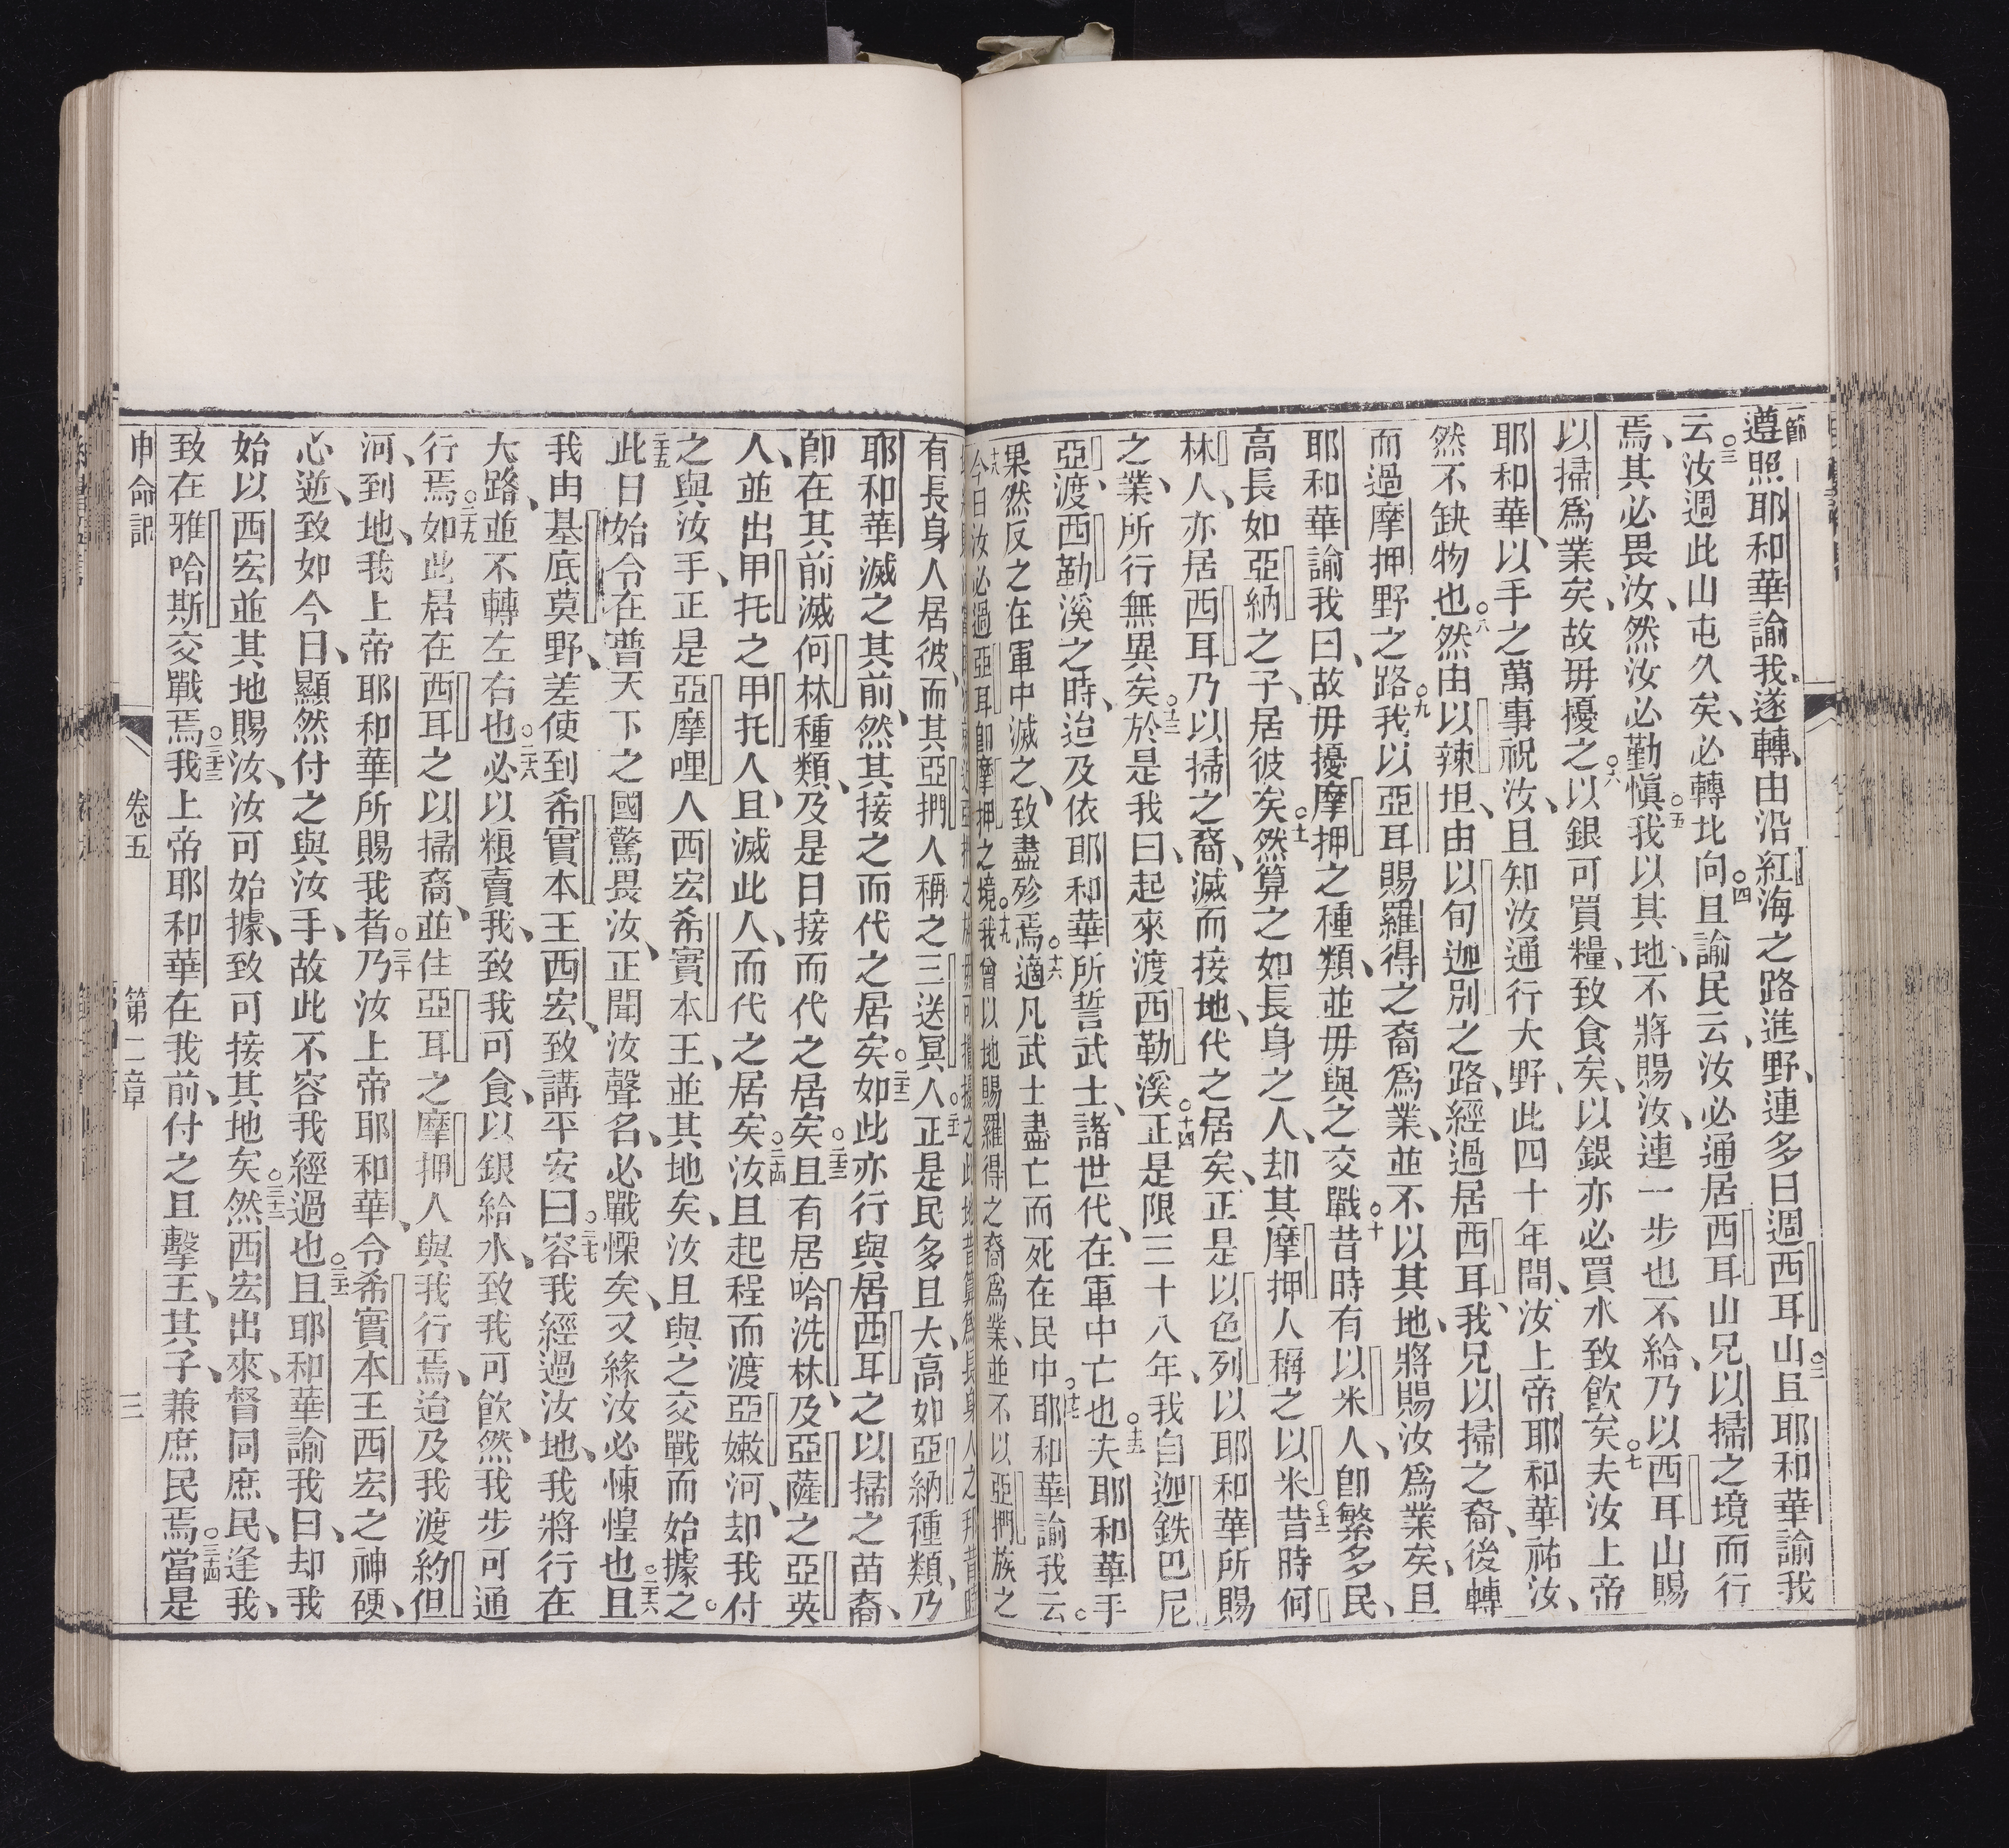 節
遵照耶和華諭我、遂轉、由沿紅海之路進野、連多日週西耳山○二且耶和華諭我
云○三汝週此山屯久矣、必轉北向○四且諭民云、汝必通居西耳山兄以掃之境而行
焉、其必畏汝、然汝必勤愼○五我以其地、不將賜汝、連一步也不給、乃以西耳山賜
以掃爲業矣、故毋擾之○六以銀可買糧、致食矣、以銀亦必買水致飲矣○七夫汝上帝
耶和華、以手之萬事祝汝、且知汝通行大野、此四十年間、汝上帝耶和華祐汝、
然不缺物也○八然由以辣坦、由以旬迦別之路、經過居西耳、我兄以掃之裔、後轉
而過摩押野之路○九我以亞耳賜羅得之裔爲業、並不以其地、將賜汝爲業矣、且
耶和華諭我曰、故毋擾摩押之種類、並毋與之交戰○十昔時有以米人、卽繁多民、
高長如亞納之子、居彼矣○十一然算之如長身之人、却其摩押人稱之以米○十二昔時何
林人、亦居西耳、乃以掃之裔、滅而接地、代之居矣、正是以色列以耶和華所賜
之業、所行無異矣○十三於是我曰、起來渡西勒溪○十四正是限三十八年、我自迦鉄巴尼
亞、渡西勒溪之時、迨及依耶和華所誓武士、諸世代、在軍中亡也○十五夫耶和華手
果然反之在軍中滅之、致盡殄焉○十六適凡武士盡亡而死在民中○十七耶和華諭我云○
十八今日汝必過亞耳卽摩押之境○十九我曾以地賜羅得之裔爲業、並不以亞捫族之
有長身人居彼、而其亞捫人稱之三送冥人○二十一正是民多且大、高如亞納種類、乃
耶和華滅之其前、然其接之而代之居矣○二十二如此亦行與居西耳之以掃之苗裔、
卽在其前滅何林種類、及是日接而代之居矣○二十三且有居哈洗林、及亞薩之亞英
人、並出甲托之甲托人、且滅此人、而代之居矣○二十四汝且起程而渡亞嫩河、却我付
之與汝手、正是亞摩哩人西宏希實本王、並其地矣、汝且與之交戰而始據之○
二十五此日始令在普天下之國驚畏汝、正聞汝聲名、必戰慄矣、又緣汝必悚惶也○二十六且
我由基底莫野、差使到希實本王西宏、致講平安曰○二十七容我經過汝地、我將行在
大路、並不轉左右也○二十八必以粮賣我、致我可食、以銀給水、致我可飲、然我步可通
行焉○二十九如此居在西耳之以掃裔、並住亞耳之摩押人與我行焉、迨及我渡約但
河、到地、我上帝耶和華所賜我者○三十乃汝上帝耶和華、令希實本王西宏之神硬、
心逆、致如今日、顯然付之與汝手、故此不容我經過也○三十一且耶和華諭我曰、却我
始以西宏並其地賜汝、汝可始據、致可接其地矣○三十二然西宏出來、督同庶民、逢我、
致在雅哈斯交戰焉○三十三我上帝耶和華在我前、付之且擊王、其子、兼庶民焉○三十四當是
申命記 卷五 第二章 三